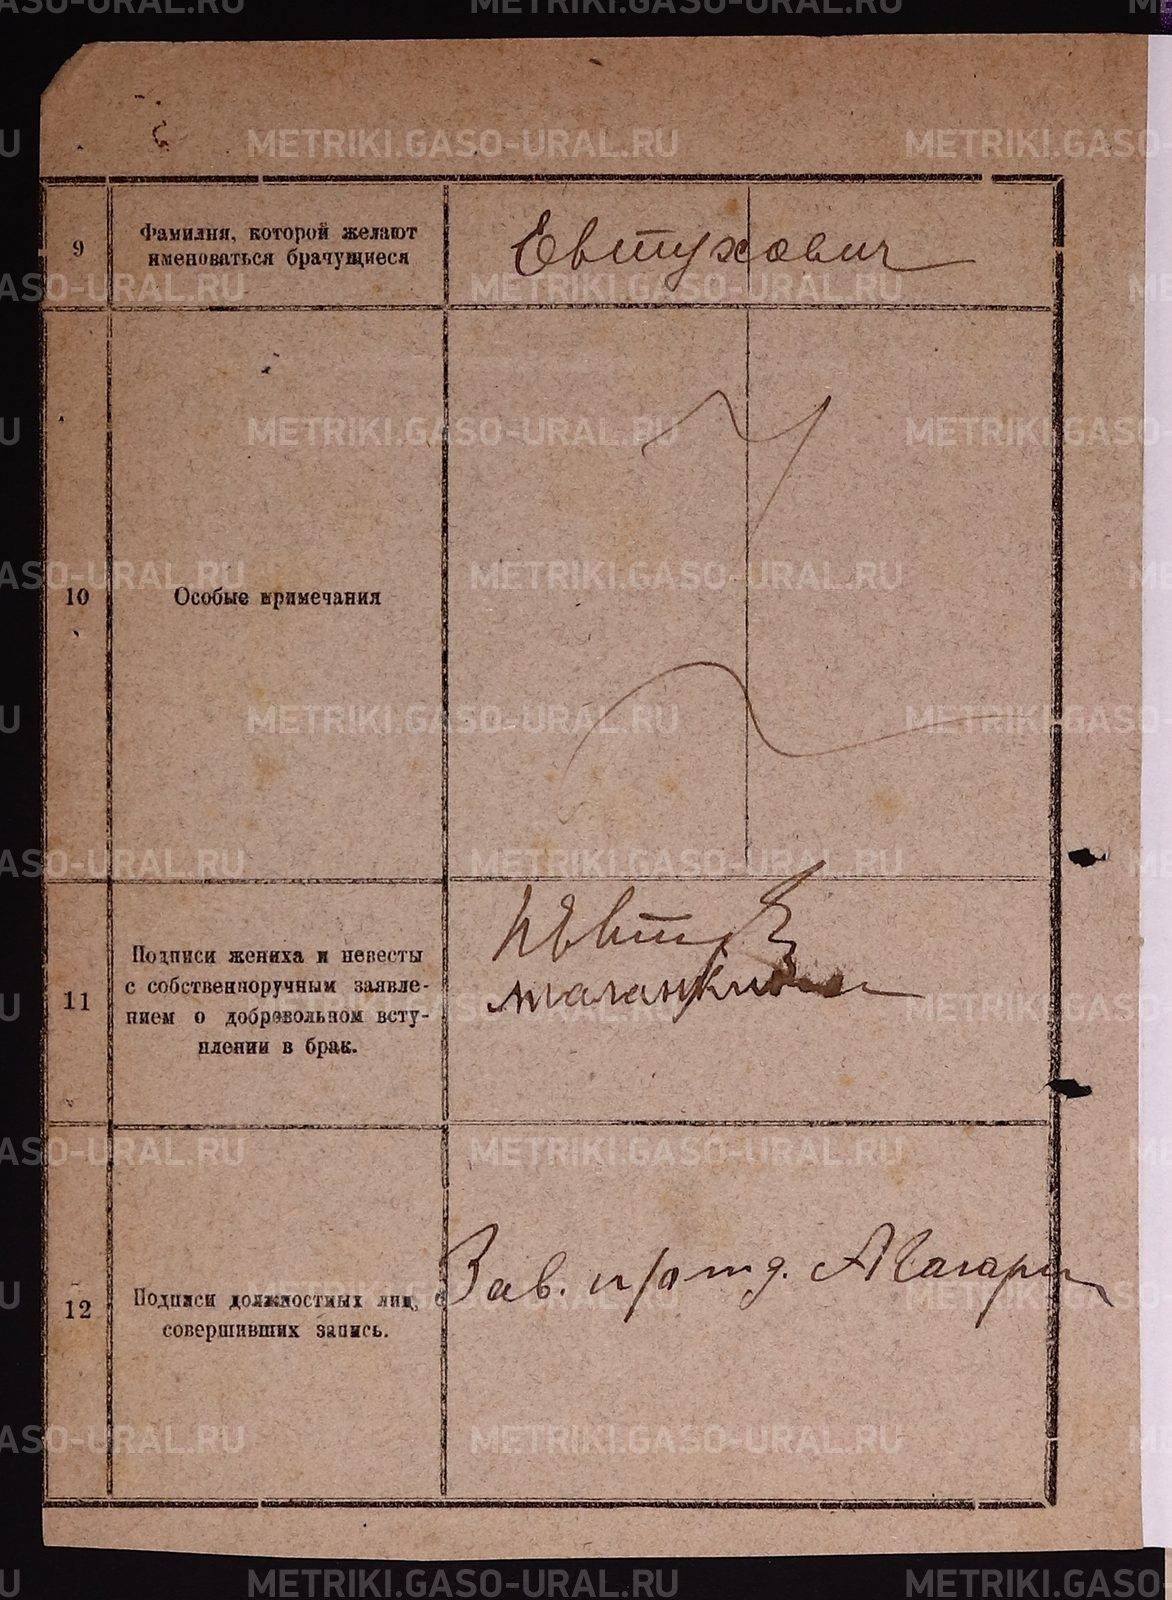 METRIKI.GASO-URAL.RU
9
Фамилия, которой желают
именоваться брачущиеся
Евтухович
10
Особые примечания
11
Подписи жениха и невесты
с собственноручным заявле-
нием о добровольном всту-
плении в брак.
12
Подписи должностных лиц,
совершивших запись.
Зав. п/отд.